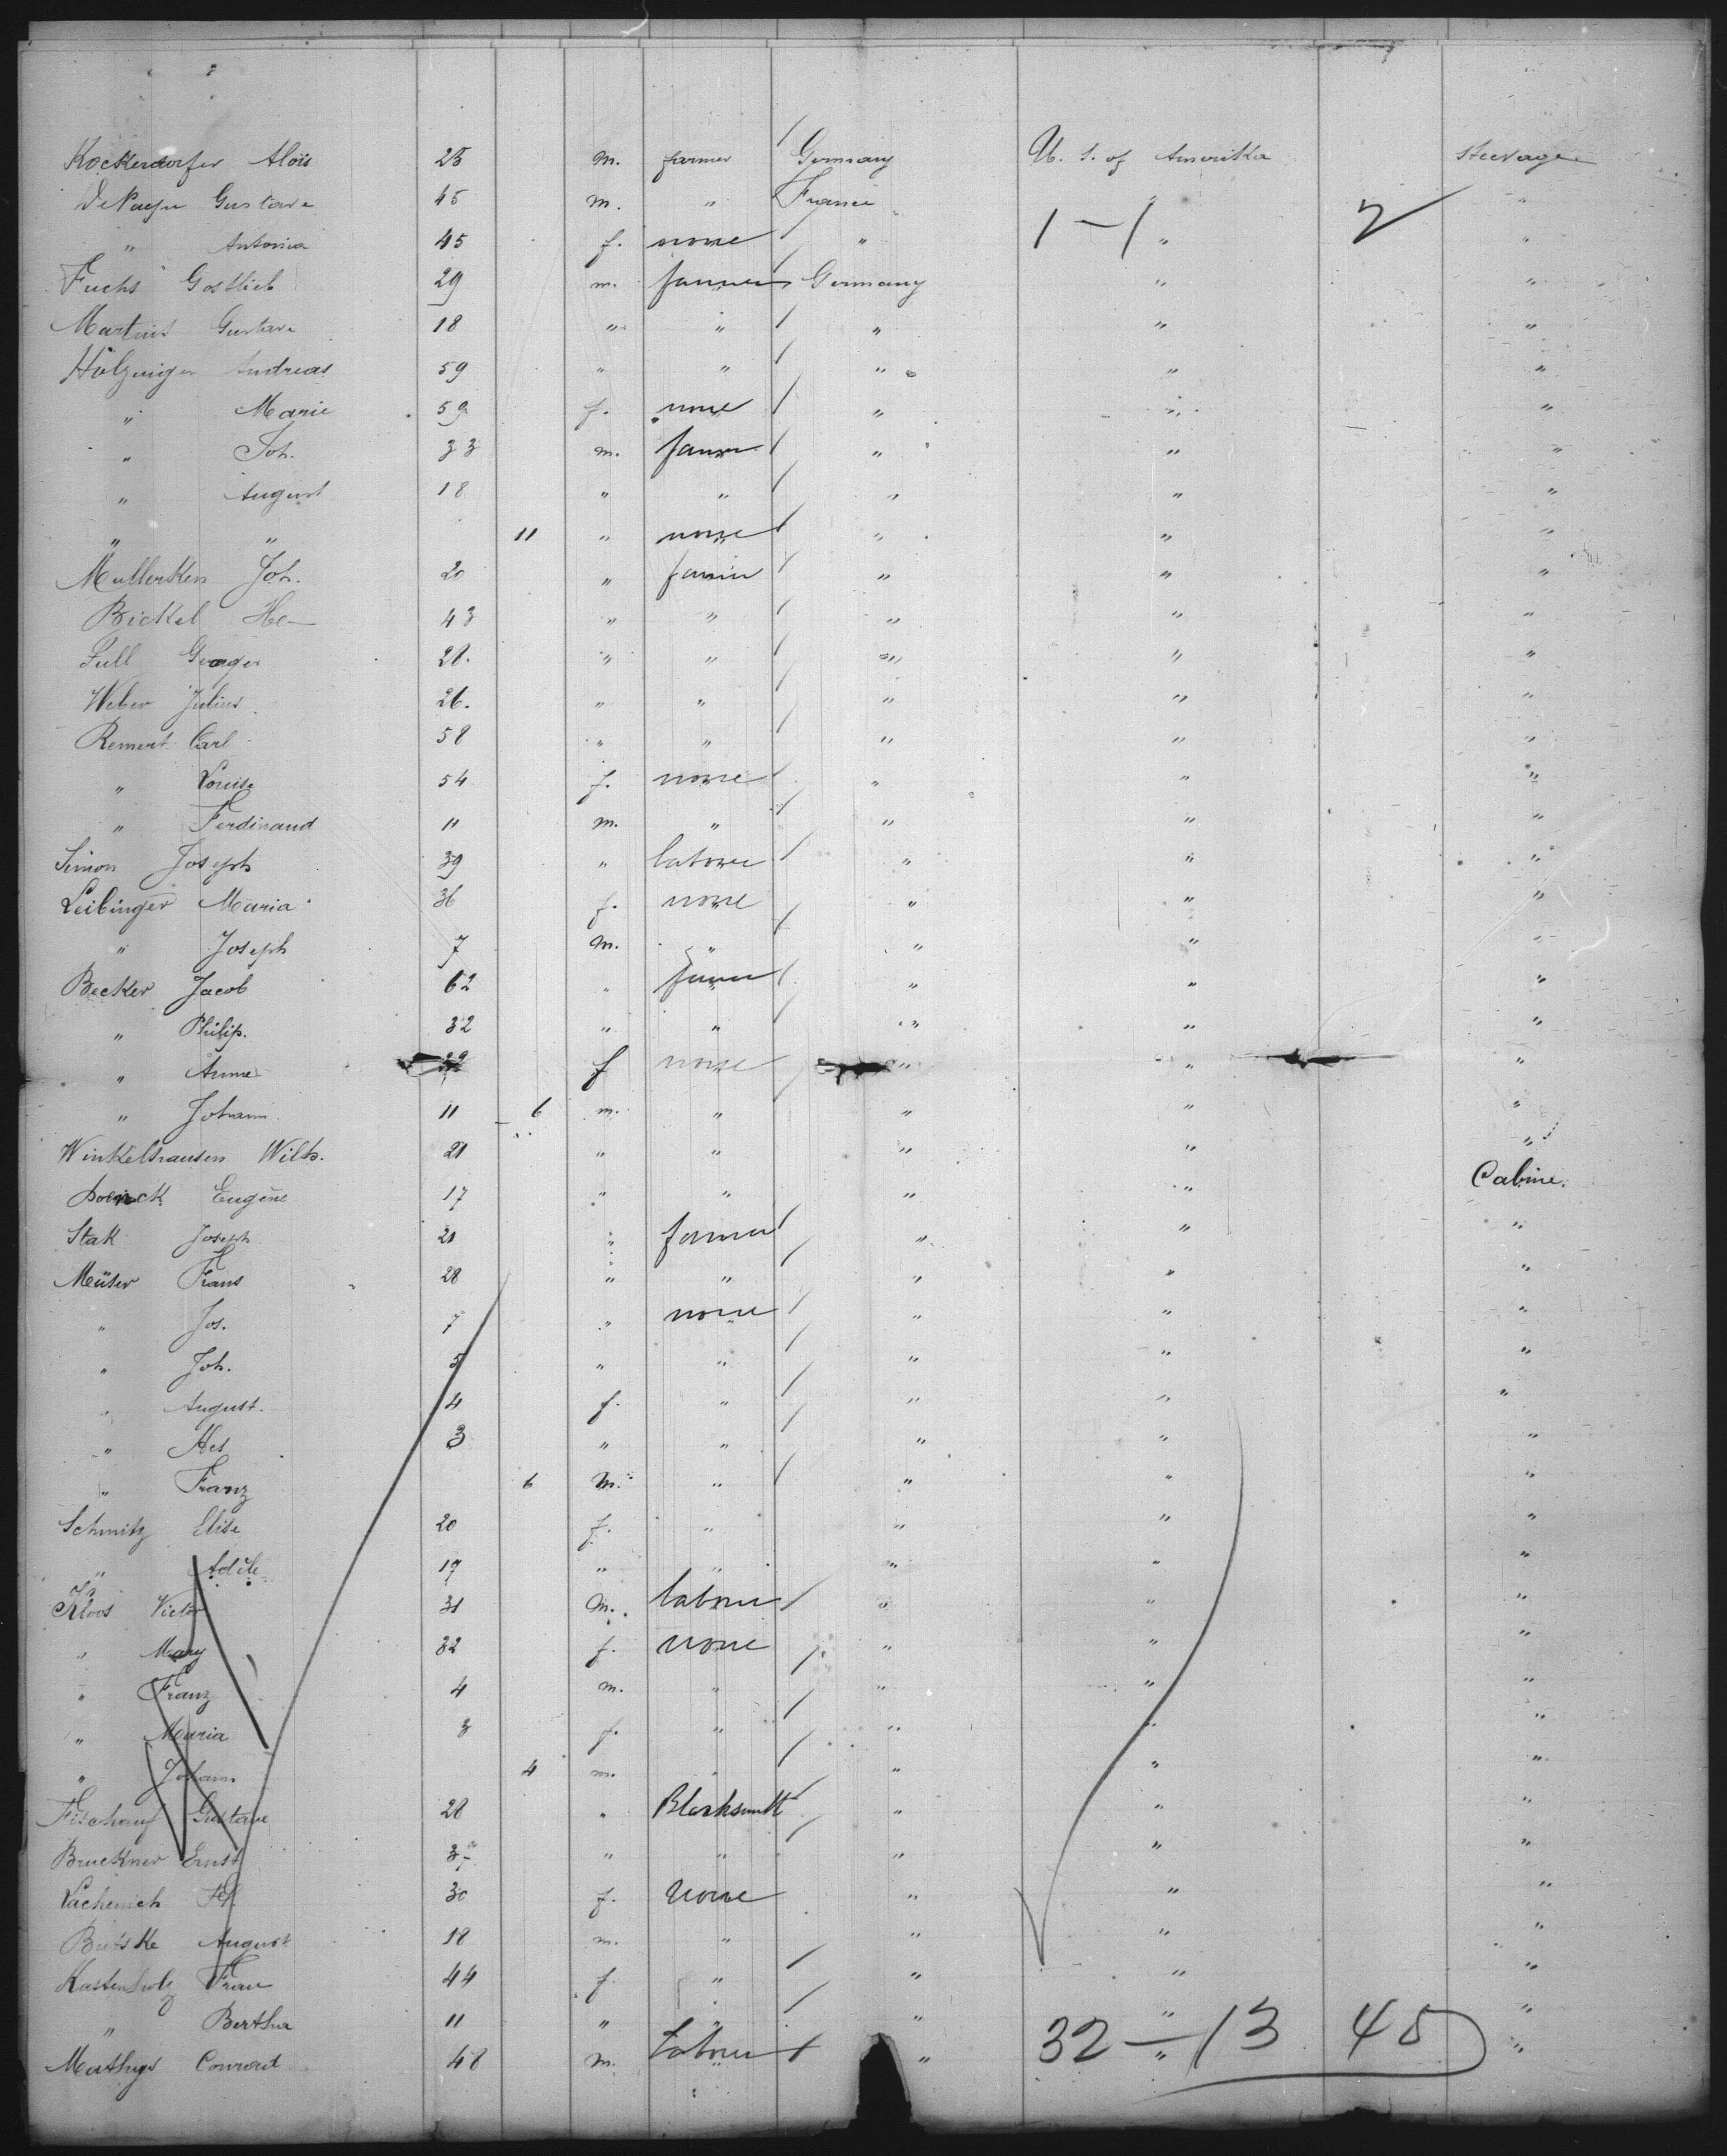 Kockerdorfer Alois 25 m. farmer Germany U. S. of Amerika Steerage
Gustave 45 m. " France " "
" Antonia 45 f. none " 1 - 1 " 2 "
Fuchs Gottlieb 29 m. farmer Germany " "
Martins Gustave 18 " " " " "
Andreas 59 " " " " "
" Marie 59 f. none " " "
" Joh. 33 m. farmer " " "
" August 18 " " " " "
" " 11 " none " " "
Mullerken Joh. 20 " farmer " " "
Bickel He— 43 " " " " "
Full George 28. " " " " "
Weber Julius 26. " " " " "
Remert Carl 58 " " " " "
" Louise 54 f. none " " "
" Ferdinand 11 m. " " " "
Simon Joseph 39 " laborer " " "
Leibinger Maria 36 f. none " " "
" Joseph 7 m. " " " "
Becker Jacob 62 " farmer " " "
" Philip. 32 " " " " "
" Anne f none " " "
" Johann 11 6 m. " " " "
Winkelhausen Wilh. 21 " " " " "
Eugène 17 " " " " Cabine.
Stak Joseph 21 " farmer " " "
Meüser Frans 28 " " " " "
" Jos. 7 " none " " "
" Joh. 5 " " " " "
" August. 4 f. " " " "
" 3 " " " " "
" Franz 6 m. " " " "
Schmitz Elise 20 f. " " " "
" Adèle 19 " " " " "
Kloos Victor 31 m. laborer " " "
" Mary 32 f. none " " "
" Franz 4 m. " " " "
" Maria 3 f. " " " "
" Johann 4 m. " " " "
Gustave 28 " Blacksmith " " "
Bruckner Ernst " " " " "
Lachenich 30 f. none " " "
Butske August 18 m. " " " "
Kastenholz Frau 44 f. " " " "
" Bertha 11 " " " " "
Mathys Conrad 48 m. Laborer " 32 - " 13 45 "